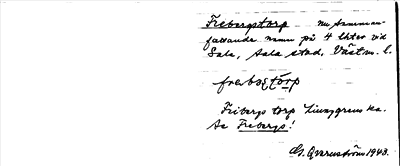 Frebergstorp nu samman-
fattande namn på 4 lhter vid
Sala, Sala stad, Västm. l.
Fribergs torp Ljunggrens ka.
Se Freberg!
G. Qvarnström 1943.